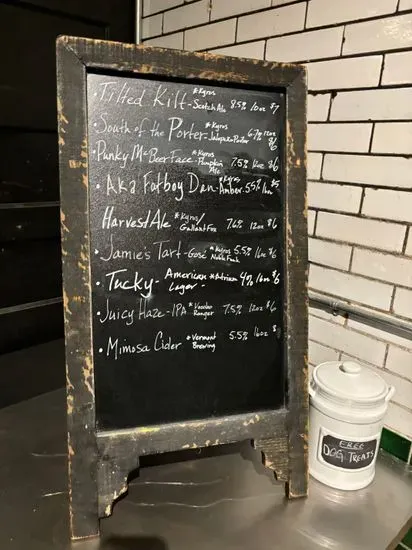 • Tilted Kilt - *Kyrus Scotch Ale 8.5% 10oz $7
• South of the Porter - *Kyrus Jalapeño Porter 6.7% 12oz $6
• Punky McBeerFace - *Kyrus Pumpkin Ale 7.5% 12oz $6
• Aka Fatboy Dan - *Kyrus Amber 5.5% 16oz $5
Harvest Ale *Kyrus/ Gallant Fox 7.6% 12oz $6
• Jamies Tart - Gose *Kyrus 5.5% 16oz $6
• Tucky - American Lager - *Atrium 4% 16oz $6
• Juicy Haze - IPA *Voodoo Ranger 7.5% 12oz $6
• Mimosa Cider *Vermont Brewing 5.5% 16oz $
FREE
DOG TREATS